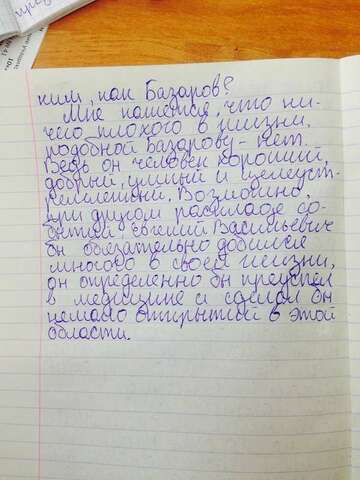 ким, как Базаров?
Мне кажется, что ни-
чего плохого в жизни,
подобной Базарову - нет.
Ведь он человек хороший,
добрый, умный и целеуст-
ремленный, Возможно,
при другом раскладе со-
бытий Евгений Васильевич
бы обязательно добился
многого в своей жизни,
он определенно бы преуспел
в медицине и сделал бы
немало открытий в этой
области.